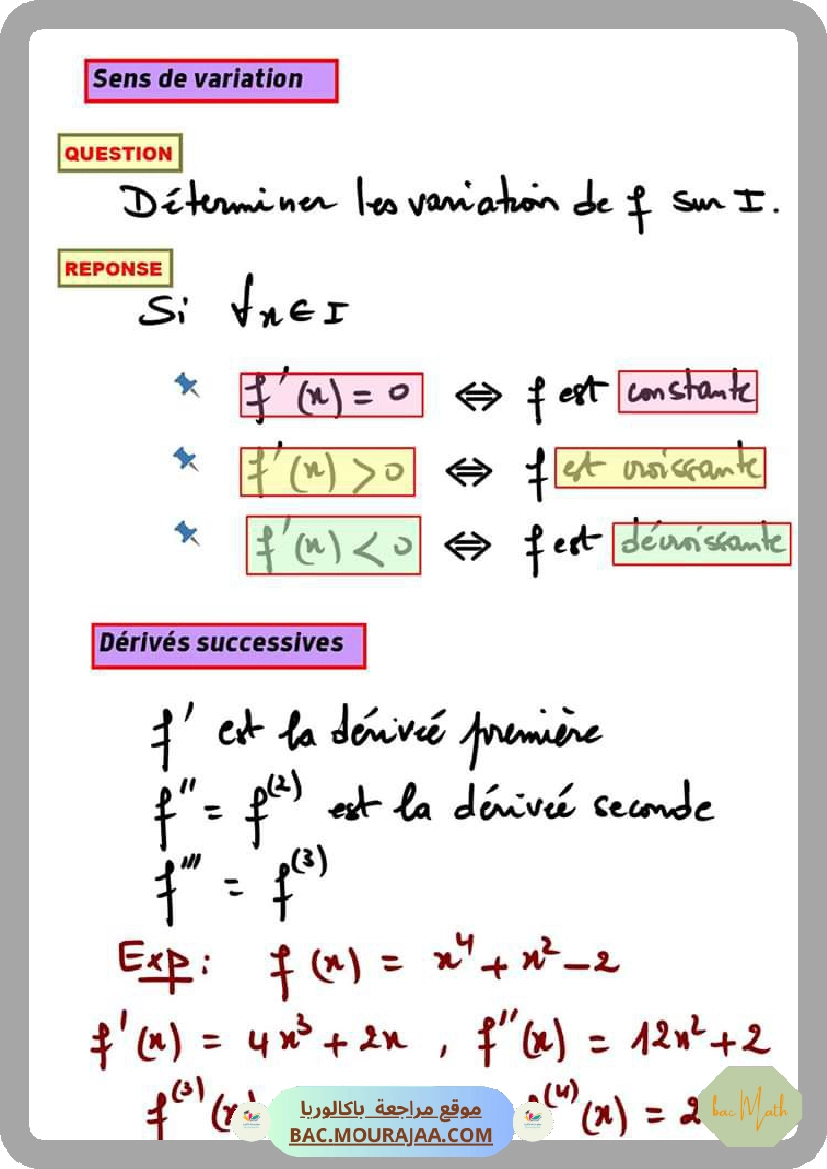 Sens de variation
QUESTION
Déterminer les variation de f sur I.
REPONSE
Si ∀x ∈ I
f'(x) = 0 ⇔ f est constante
f'(x) > 0 ⇔ f est croissante
f'(x) < 0 ⇔ f est décroissante
Dérivés successives
f' est la dérivée première
f'' = f⁽²⁾ est la dérivée seconde
f''' = f⁽³⁾
Exp: f(x) = x⁴ + x² - 2
f'(x) = 4x³ + 2x , f''(x) = 12x² + 2
f⁽³⁾(x) f⁽⁴⁾(x) = 2
موقع مراجعة باكالوريا
BAC.MOURAJAA.COM
bac Math